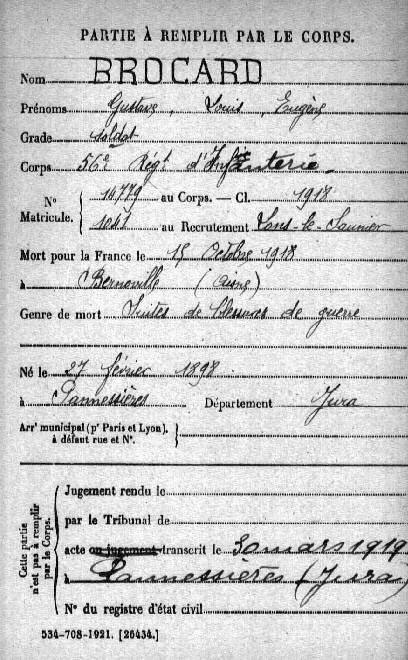 PARTIE À REMPLIR PAR LE CORPS.
Nom BROCARD
Prénoms Gustave, Louis, Eugène
Grade soldat
Corps 56e Régt d'Infanterie
N° Matricule. { 14779 au Corps. — Cl. 1918
1047 au Recrutement Lons-le-Saunier
Mort pour la France le 15 Octobre 1918
à Bernoville (Aisne)
Genre de mort Suites de blessures de guerre
Né le 27 février 1898
à Pannessières Département Jura
Arrt municipal (pr Paris et Lyon), à défaut rue et N°. }
Cette partie n'est pas à remplir par le Corps.
Jugement rendu le
par le Tribunal de
acte ou jugement transcrit le 30 mars 1919
à Pannessières (Jura)
N° du registre d'état civil
534-708-1921. [26434.]